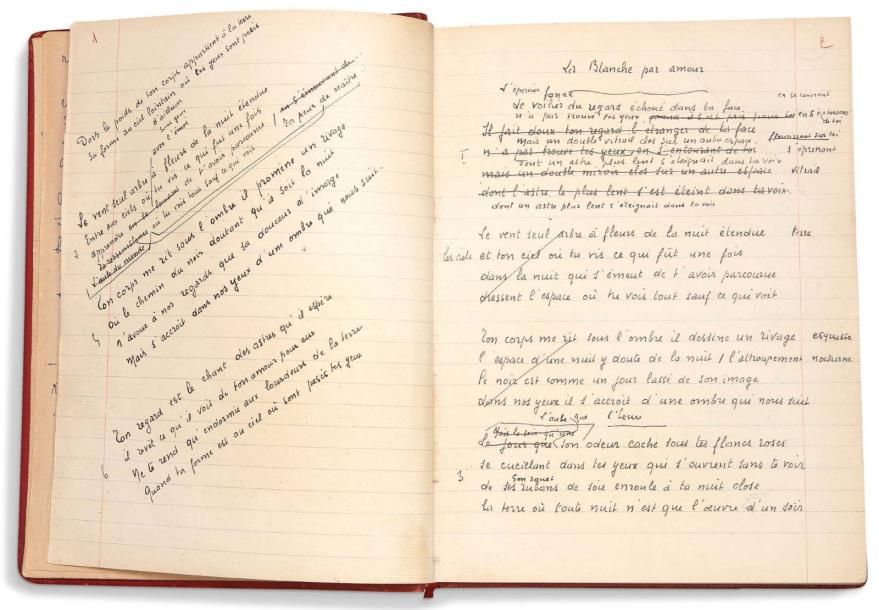 1
Dors le poids de son corps appartient à la terre
Sa forme au ciel lointain où tes yeux sont pesés
d'ailleurs
Le vent seul arbre à fleurs de la nuit étendue
Entre aux ciels où tu vis ce qui fut une fois
apprendre de t'avoir parcourue
où tu vois tout sauf ce qui voit
en s'émouvant de
ta peur de naître
l'aube du monde
2
Ton corps me rit sous l'ombre il promène un rivage
Où le chemin du noir doutant qu'il soit la nuit
N'avoue à nos regards que sa douceur d'image
Mais s'accroît dans nos yeux d'une ombre qui nous suit
4
Ton regard est le chant des astres qu'il espère
il revêt ce qu'il voit de ton amour pour eux
Ne te rend qu'endormie aux lourdeurs de la terre
Quand ta forme est au ciel où sont pesés tes yeux
6
2
La Blanche par amour
L'épervier fané
en se couvrant
Le voilier du regard échoué dans ta face
n'a pas trouvé tes yeux quand il s'est pris pour toi en s'
de toi
Il fait doux ton regard l'étranger de ta face
Mais un double vitrail clos sur un autre espace
fleurissant sur toi
1
n'a pas trouvé tes yeux en s'entourant de toi
s'éprenant
Dont un astre plus lent s'éteignait dans ta voix
mais un double miroir clos sur un autre espace
vitrail
dont l'astre le plus lent s'est éteint dans ta voix
dont un astre plus lent s'éteignait dans ta voix
Le vent seul arbre à fleurs de la nuit étendue
terre
les ciels
et ton ciel où tu vis ce qui fût une fois
dans la nuit qui s'émeut de t'avoir parcourue
dressent l'espace où tu vois tout sauf ce qui voit
Ton corps me rit sous l'ombre il dessine un rivage
esquisse
l'espace d'une nuit y doute de la nuit / l'attroupement nocturne
Le noir est comme un jour lassé de son image
Dans nos yeux il s'accroît d'une ombre qui nous suit
l'aube que l'heure
Vois le soir qu'une
Le jour que son odeur cache sous tes flancs roses
se cueillant dans tes yeux qui s'ouvrent sans te voir
3
Son rouet
de ses rubans de soie enroule à ta nuit close
la terre où toute nuit n'est que l'œuvre d'un soir